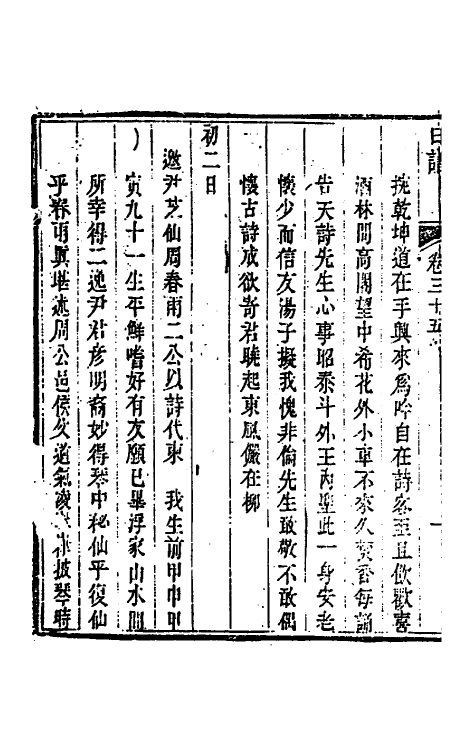 日譜
卷三十五
挽乾坤道在手興來為吟自在詩客至且飲歡喜
酒林間高閣望中希花外小車不來久焚香每誦
告天詩先生心事昭泰斗外王內聖此一身安老
懷少而信友湯子擬我愧非倫先生敢敬不敢偶
懷古詩成欲寄君曉起東風儼在柳
初二日
邀尹芝仙周春雨二公以詩代柬 我生前甲申甲
寅九十一生平鮮嗜好有友願已畢浮家山水間
所幸得二逸尹君彥明裔妙得琴中秘仙乎復仙
乎春雨真堪述周公邑侯父道氣凌 披琴時